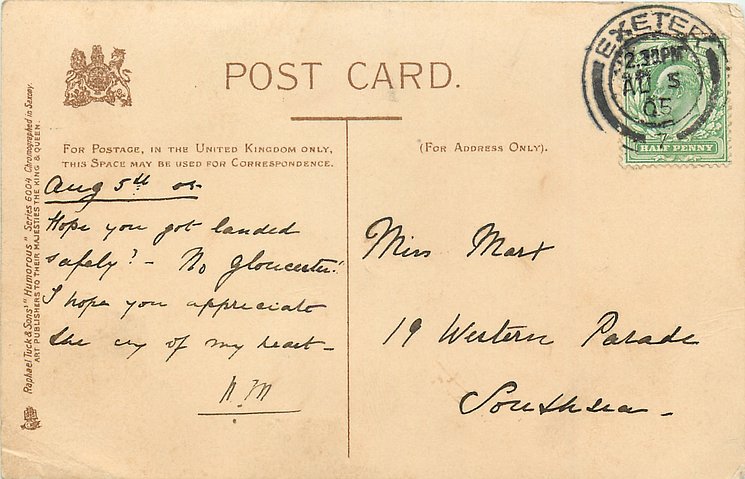 POST CARD.
FOR POSTAGE, IN THE UNITED KINGDOM ONLY,
THIS SPACE MAY BE USED FOR CORRESPONDENCE.
(FOR ADDRESS ONLY).
Raphael Tuck & Sons' "Humorous" Series 6004. Chromographed in Saxony.
ART PUBLISHERS TO THEIR MAJESTIES THE KING & QUEEN.
EXETER
2.30PM
AU 5
05
HALF PENNY
Aug 5th 05
Hope you got landed
safely? - No Gloucester!
I hope you appreciate
the cry of my heart -
Miss Marx
19 Western Parade
Southsea -